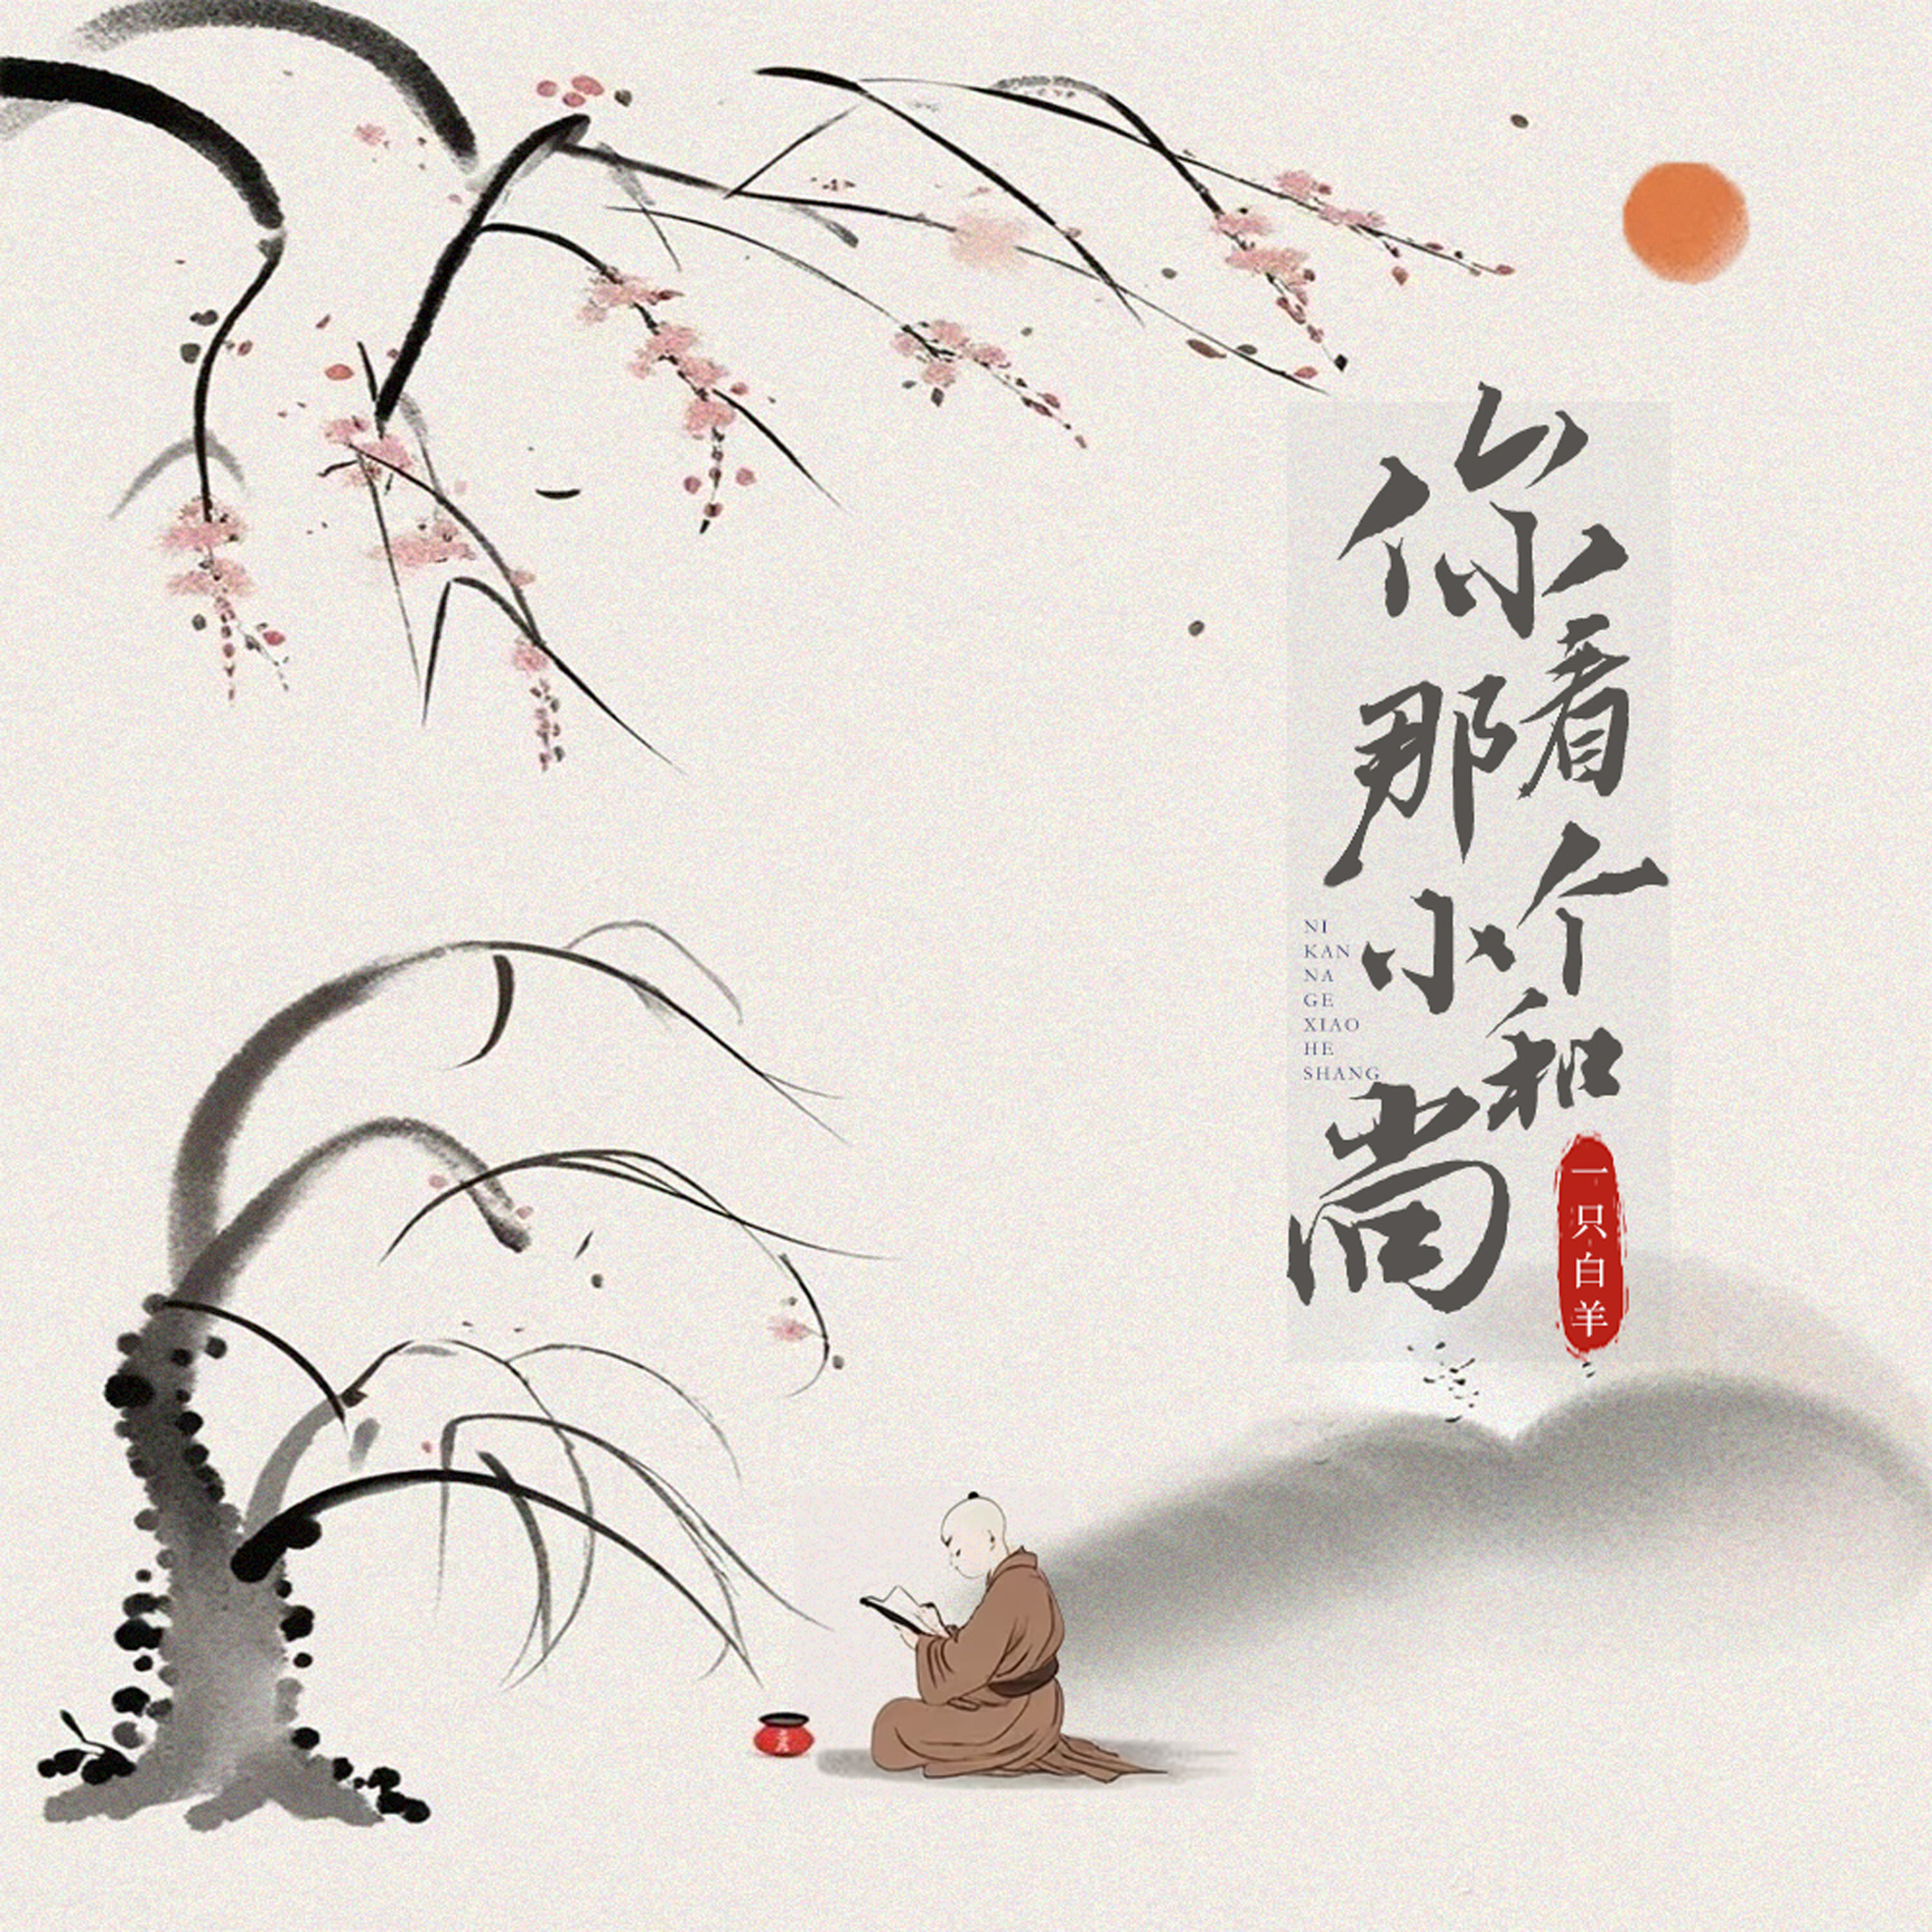 你看
那个
小和
尚
NI
KAN
NA
GE
XIAO
HE
SHANG
一只白羊